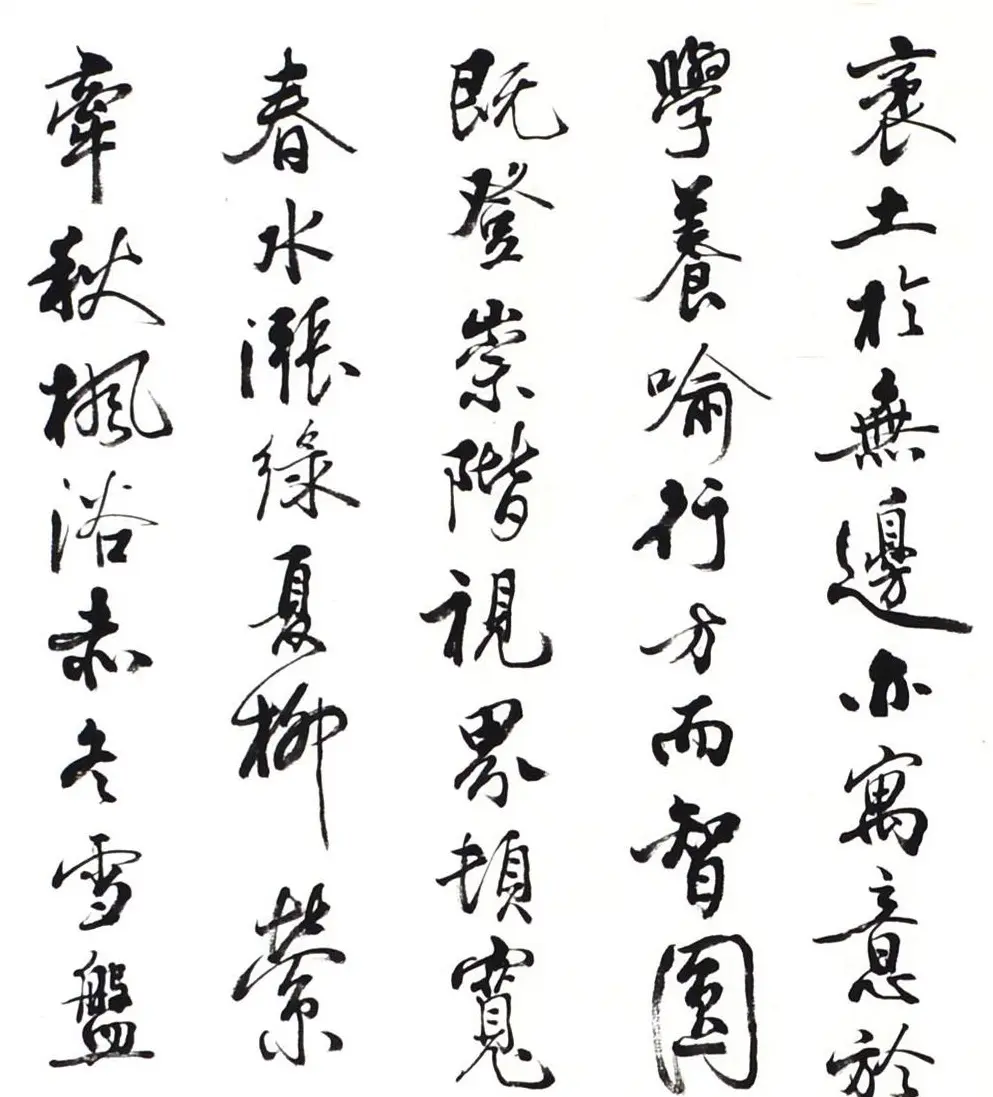 裹土於無邊亦寓意於
學養喻行方而智圓
既登崇階視界頓寬
春水漲綠夏柳縈
牽秋楓浴赤冬雪盤